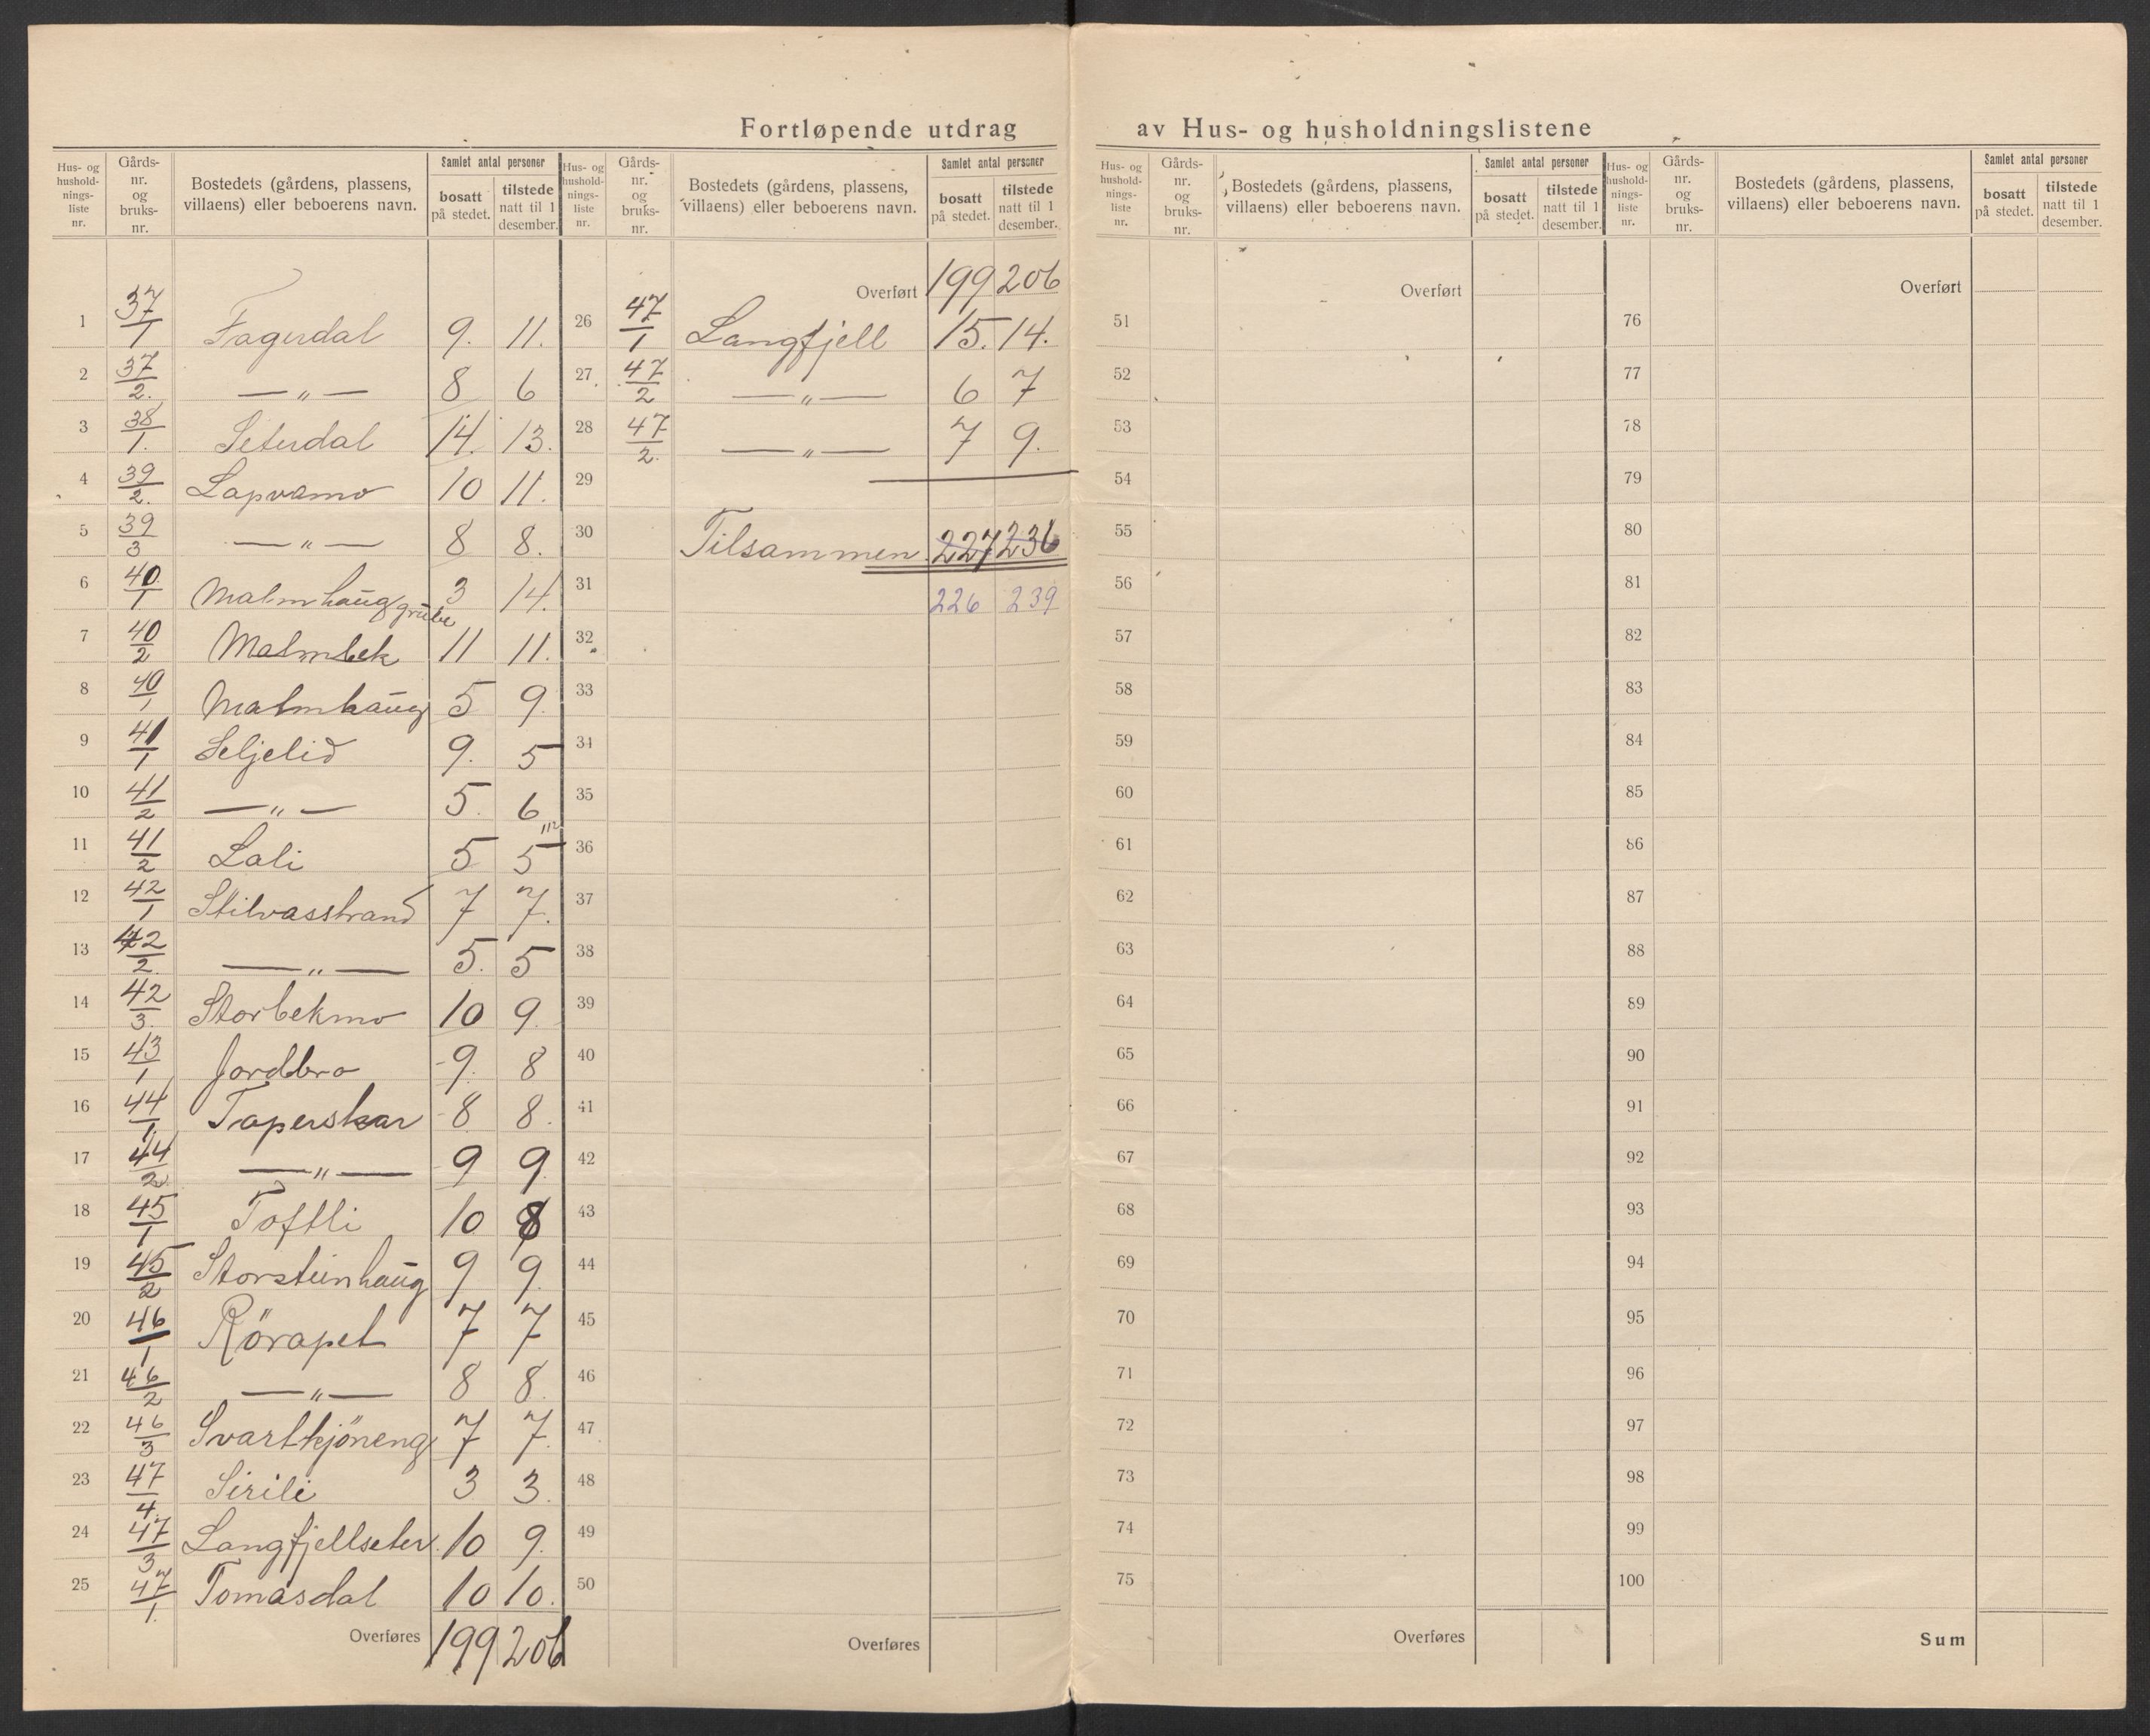 Fortløpende utdrag av Hus- og husholdningslistene
Hus- og husholdnings-liste nr. | Gårds-nr. og bruks-nr. | Bostedets (gårdens, plassens, villaens) eller beboerens navn. | Samlet antal personer bosatt på stedet. | tilstede natt til 1 desember.
1 37/1 Fagerdal 9. 11.
2 37/2. —„— 8 6
3 38/1. Seterdal 14. 13.
4 39/2. Lapvamo 10 11.
5 39/3 —„— 8 8.
6 40/1 Malmhaug grube 3 14.
7 40/2 Malmbek 11 11.
8 40/1 Malmhaug 5 9.
9 41/1 Seljelid 9. 5
10 41/2 —„— 5. 6
112
11 41/2 Lali 5 5
12 42/1 Stilvasstrand 7 7.
13 42/2. —„— 5. 5
14 42/3. Storbekmo 10 9.
15 43/1 Jordbro 9. 8
16 44/1. Taperskar 8 8.
17 44/2. —„— 9 9
18 45/1 Toftli 10 8
19 45/2 Storsteinhaug 9 9.
20 46/1 Rörapet 7 7
21 46/2 —„— 8 8.
22 46/3 Svarttjöneng 7 7.
23 47/4. Sirili 3 3.
24 47/3 Langfjellseter. 10 9.
25 47/1. Tomasdal 10 10.
Overføres 199 206
Hus- og husholdnings-liste nr. | Gårds-nr. og bruks-nr. | Bostedets (gårdens, plassens, villaens) eller beboerens navn. | Samlet antal personer bosatt på stedet. | tilstede natt til 1 desember.
Overført 199 206
26 47/1 Langfjell 15. 14.
27 47/2 —„— 6 7
28 47/2. —„— 7 9.
29
30 Tilsammen 227 236
31 226 239
32
33
34
35
36
37
38
39
40
41
42
43
44
45
46
47
48
49
50
Overføres
Hus- og husholdnings-liste nr. | Gårds-nr. og bruks-nr. | Bostedets (gårdens, plassens, villaens) eller beboerens navn. | Samlet antal personer bosatt på stedet. | tilstede natt til 1 desember.
Overført
51
52
53
54
55
56
57
58
59
60
61
62
63
64
65
66
67
68
69
70
71
72
73
74
75
Overføres
Hus- og husholdnings-liste nr. | Gårds-nr. og bruks-nr. | Bostedets (gårdens, plassens, villaens) eller beboerens navn. | Samlet antal personer bosatt på stedet. | tilstede natt til 1 desember.
Overført
76
77
78
79
80
81
82
83
84
85
86
87
88
89
90
91
92
93
94
95
96
97
98
99
100
Sum